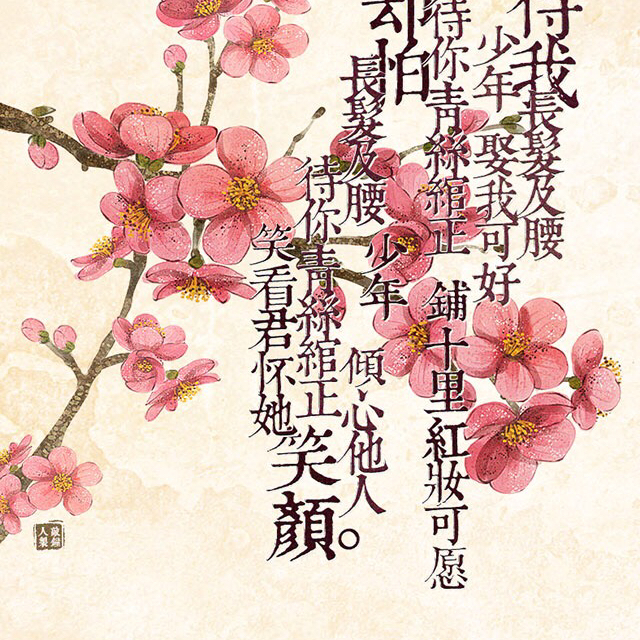 待我長髮及腰
少年 娶我可好
待你青絲綰正 鋪十里紅妝可愿
却怕
長髮及腰 少年 傾心他人
待你青絲綰正 笑顏。
笑看君怀她